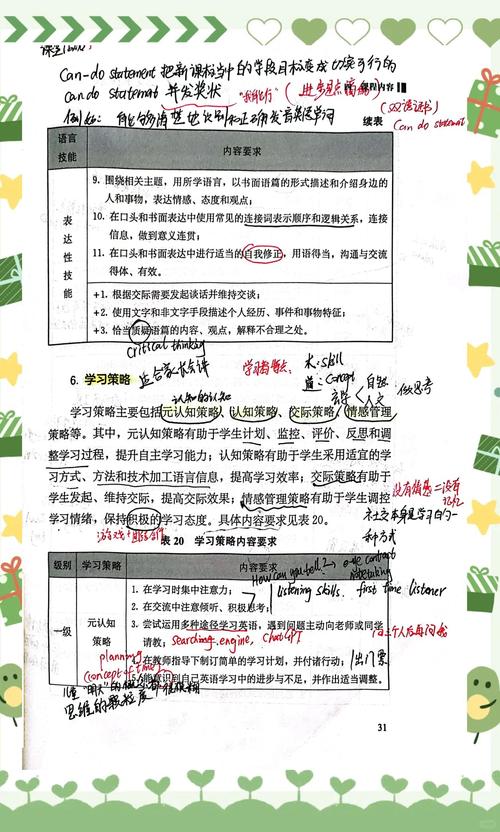 Can-do statement 把新课标当中的学段目标变成切实可行的
can do statement 并发奖状
"我能行"
(双语证书)
can do statement
课程内容
续表
语言技能 内容要求
表达性技能
9. 围绕相关主题，用所学语言，以书面语篇的形式描述和介绍身边的
人和事物，表达情感、态度和观点；
10. 在口头和书面表达中使用常见的连接词表示顺序和逻辑关系，连接
信息，做到意义连贯；
11. 在口头和书面表达中进行适当的自我修正，用语得当，沟通与交流
得体、有效。
+1. 根据交际需要发起谈话并维持交谈；
+2. 使用文字和非文字手段描述个人经历、事件和事物特征；
+3. 恰当质疑语篇的内容、观点，解释不合理之处。
Critical thinking
6. 学习策略
术: skill
道: concept
自然
人文
做思考
认知的认知
学习策略主要包括元认知策略、认知策略、交际策略、情感管理
策略等。其中，元认知策略有助于学生计划、监控、评价、反思和调
整学习过程，提升自主学习能力；认知策略有助于学生采用适宜的学
习方式、方法和技术加工语言信息，提高学习效率；交际策略有助于
学生发起、维持交际，提高交际效果；情感管理策略有助于学生调控
学习情绪，保持积极的学习态度。具体内容要求见表 20。
没有情感=没有记忆
社交本身是学习的一
种方式
表 20 学习策略内容要求
级别 学习策略 内容要求
How can you tell?
eye contact
notetaking
listening skills.
first time listener
一级
元认知策略
1. 在学习时集中注意力；
2. 在交流中注意倾听、积极思考；
3. 尝试运用多种途径学习英语，遇到问题主动向老师或同学
请教；
searching engine, ChatGPT
问三个人后再问我
4. 在教师指导下制订简单的学习计划，并付诸行动；
出门票
5. 意识到自己英语学习中的进步与不足，并作出适当调整。
planning
(concept of time)
儿童"明天"的概念都很模糊
思维的颗粒度
31